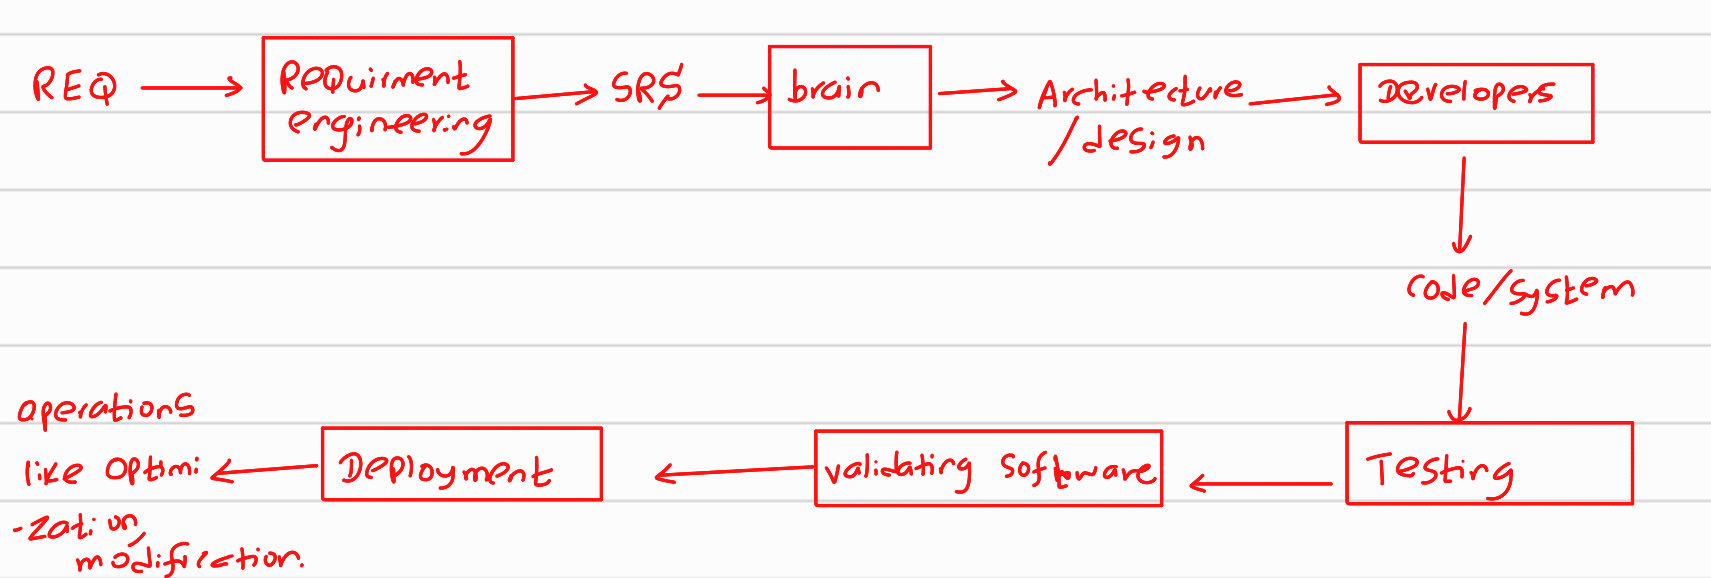 REQ
REQuirment
engineering
SRS
brain
Architecture
/design
Developers
code/system
Testing
validating Software
Deployment
operations
like optimi
-zation,
modification.